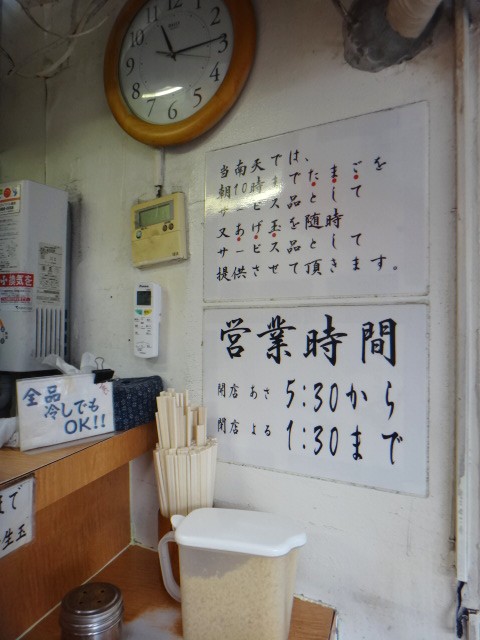 12
11
1
10
2
9
3
8
4
7
5
6
当南天では、
朝10時までたまごを
サービス品として
又あげ玉を随時
サービス品として
提供させて頂きます。
営業時間
開店 あさ 5:30から
閉店 よる 1:30まで
全品
冷しでも
OK!!
まで
生玉